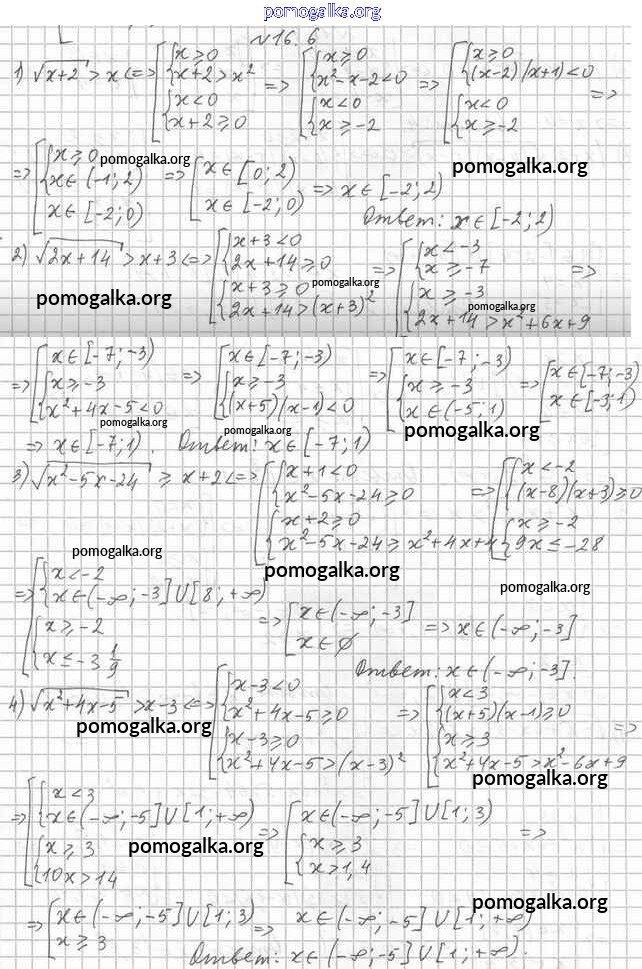 pomogalka.org
№16.6
1) √(x+2) > x <=> [{x ≥ 0; x+2 > x²}; {x < 0; x+2 ≥ 0}] => [{x ≥ 0; x²-x-2 < 0}; {x < 0; x ≥ -2}] => [{x ≥ 0; (x-2)(x+1) < 0}; {x < 0; x ≥ -2}] =>
=> [{x ≥ 0; x ∈ (-1; 2)}; x ∈ [-2; 0)] => [x ∈ [0; 2); x ∈ [-2; 0)] => x ∈ [-2; 2)
pomogalka.org
pomogalka.org
Ответ: x ∈ [-2; 2)
2) √(2x+14) > x+3 <=> [{x+3 < 0; 2x+14 ≥ 0}; {x+3 ≥ 0; 2x+14 > (x+3)²}] => [{x < -3; x ≥ -7}; {x ≥ -3; 2x+14 > x²+6x+9}] =>
pomogalka.org
pomogalka.org
pomogalka.org
=> [x ∈ [-7; -3); {x ≥ -3; x²+4x-5 < 0}] => [x ∈ [-7; -3); {x ≥ -3; (x+5)(x-1) < 0}] => [x ∈ [-7; -3); {x ≥ -3; x ∈ (-5; 1)}] => [x ∈ [-7; -3); x ∈ [-3; 1)]
pomogalka.org
pomogalka.org
pomogalka.org
=> x ∈ [-7; 1). Ответ: x ∈ [-7; 1)
3) √(x²-5x-24) ≥ x+2 <=> [{x+1 < 0; x²-5x-24 ≥ 0}; {x+2 ≥ 0; x²-5x-24 ≥ x²+4x+4}] => [{x < -2; (x-8)(x+3) ≥ 0}; {x ≥ -2; 9x ≤ -28}]
pomogalka.org
pomogalka.org
pomogalka.org
=> [{x < -2; x ∈ (-∞; -3] U [8; +∞)}; {x ≥ -2; x ≤ -3 1/9}] => [x ∈ (-∞; -3]; x ∈ ∅] => x ∈ (-∞; -3]
Ответ: x ∈ (-∞; -3].
4) √(x²+4x-5) > x-3 <=> [{x-3 < 0; x²+4x-5 ≥ 0}; {x-3 ≥ 0; x²+4x-5 > (x-3)²}] => [{x < 3; (x+5)(x-1) ≥ 0}; {x ≥ 3; x²+4x-5 > x²-6x+9}] =>
pomogalka.org
pomogalka.org
=> [{x < 3; x ∈ (-∞; -5] U [1; +∞)}; {x ≥ 3; 10x > 14}] => [x ∈ (-∞; -5] U [1; 3); {x ≥ 3; x > 1,4}] =>
pomogalka.org
pomogalka.org
=> [x ∈ (-∞; -5] U [1; 3); x ≥ 3] => x ∈ (-∞; -5] U [1; +∞)
Ответ: x ∈ (-∞; -5] U [1; +∞).